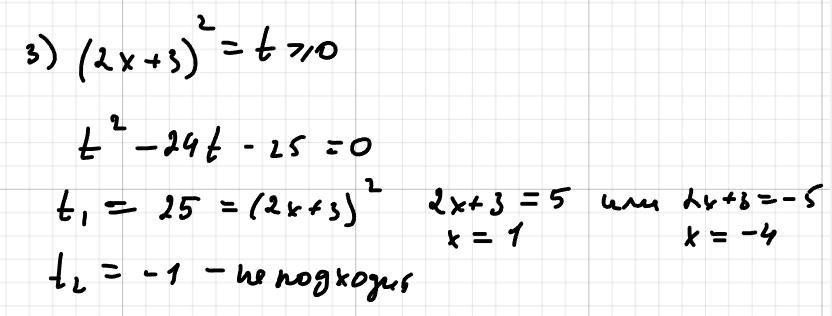 3) (2x+3)² = t ⩾ 0
t² - 24t - 25 = 0
t₁ = 25 = (2x+3)² 2x+3 = 5 или 2x+3 = -5
x = 1 x = -4
t₂ = -1 - не подходит